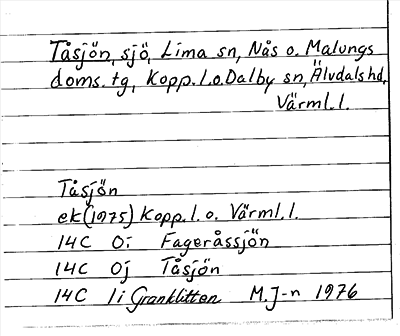 Tåsjön, sjö, Lima sn, Nås o. Malungs
doms. tg, Kopp. l. o. Dalby sn, Älvdals hd,
Värml. l.
Tåsjön
ek (1975) Kopp. l. o. Värml. l.
14C 0i Fageråssjön
14C 0j Tåsjön
14C 1i Granklitten M. J-n 1976